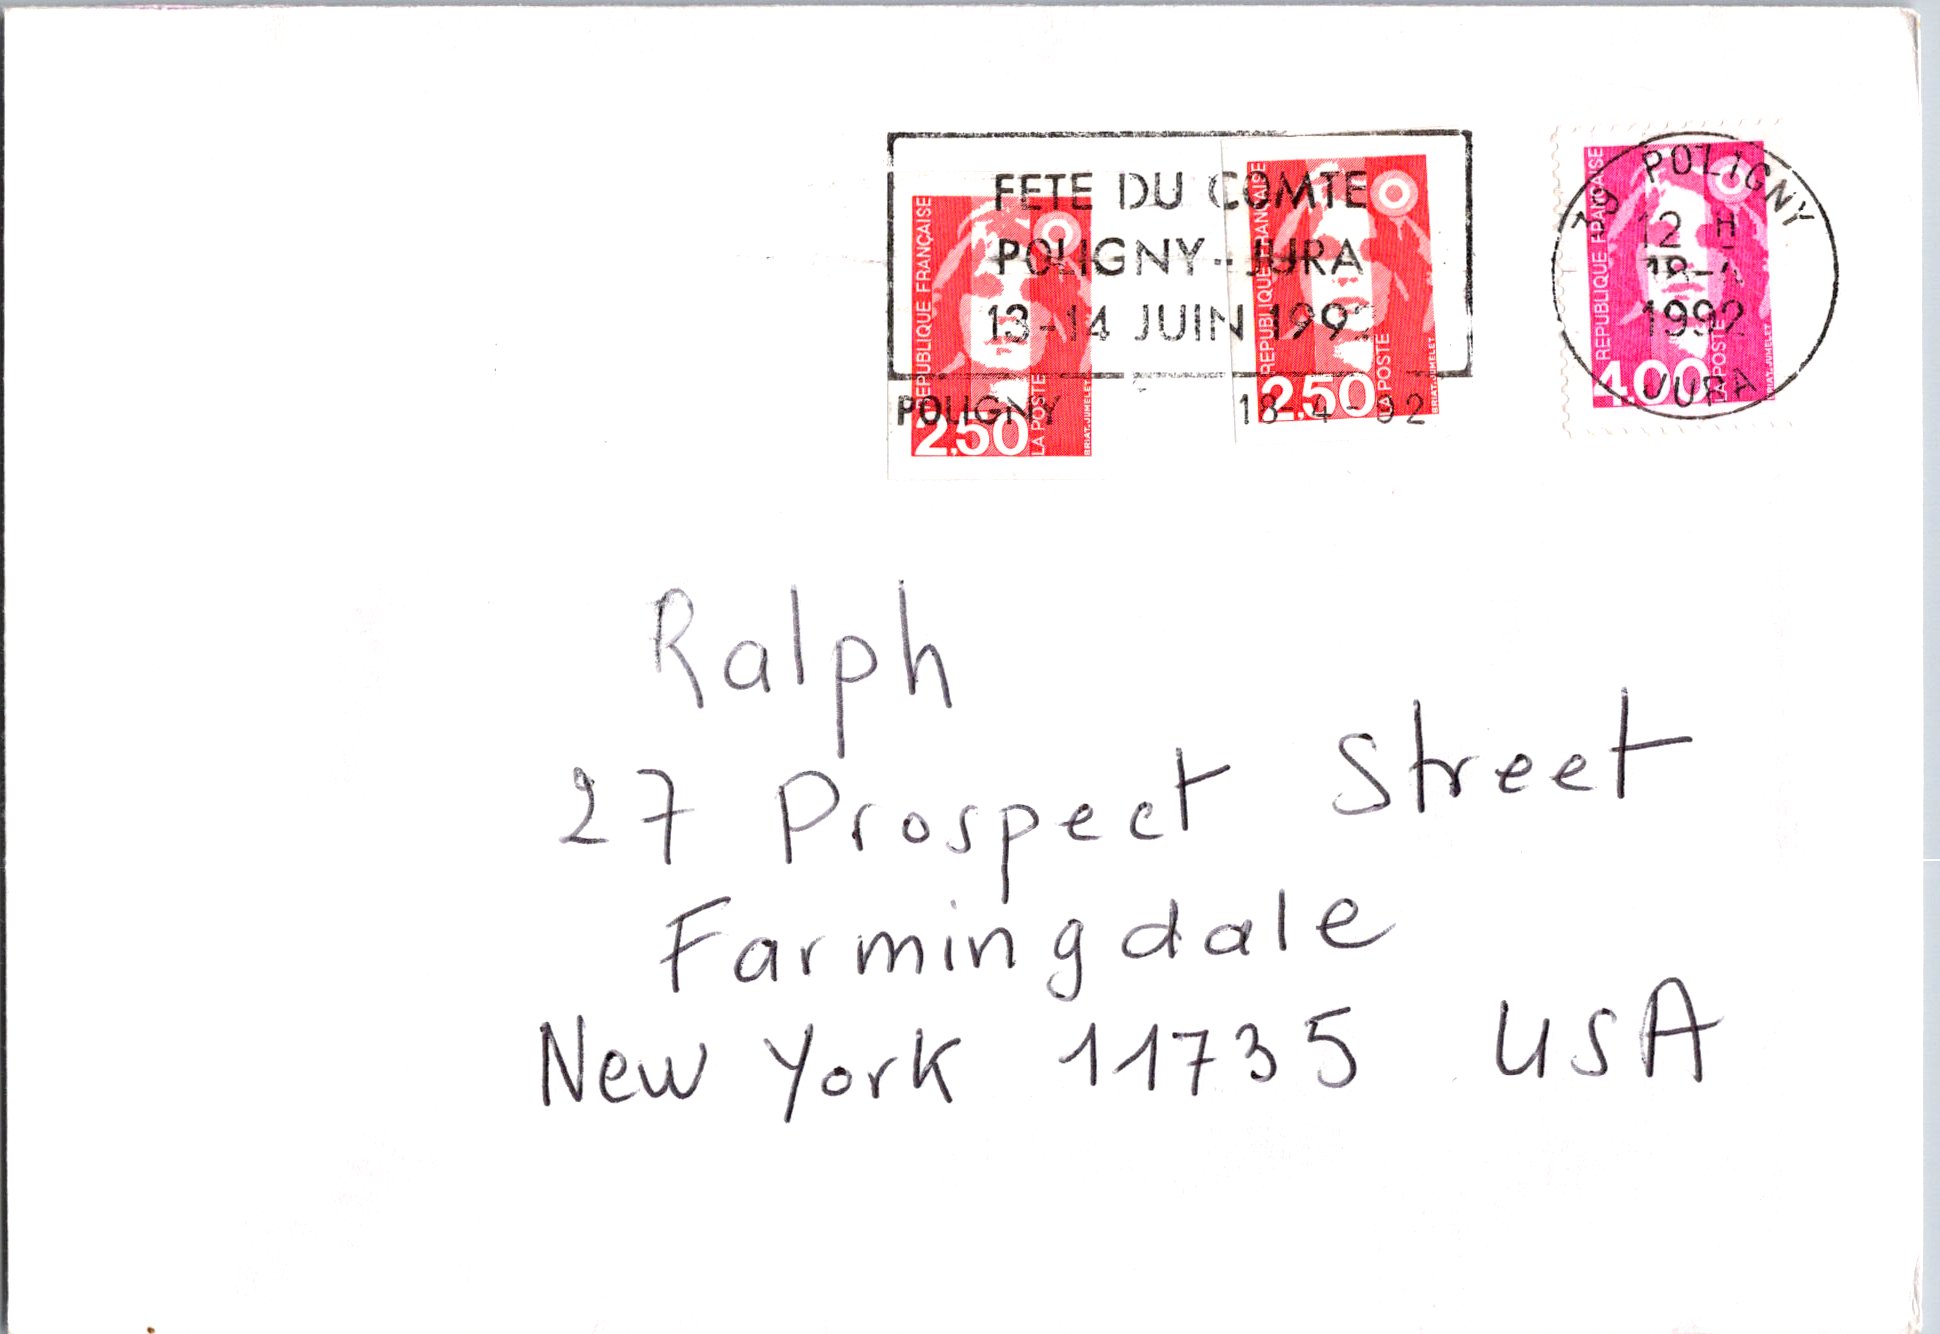 FETE DU COMTE
POLIGNY - JURA
13-14 JUIN 1992
POLIGNY 18-4-92
REPUBLIQUE FRANÇAISE
2,50
LA POSTE
BRIAT-JUMELET
REPUBLIQUE FRANÇAISE
2,50
LA POSTE
BRIAT-JUMELET
REPUBLIQUE FRANÇAISE
4,00
LA POSTE
BRIAT-JUMELET
39 POLIGNY
12 H
18-4
1992
JURA
Ralph
27 Prospect Street
Farmingdale
New York 11735 USA